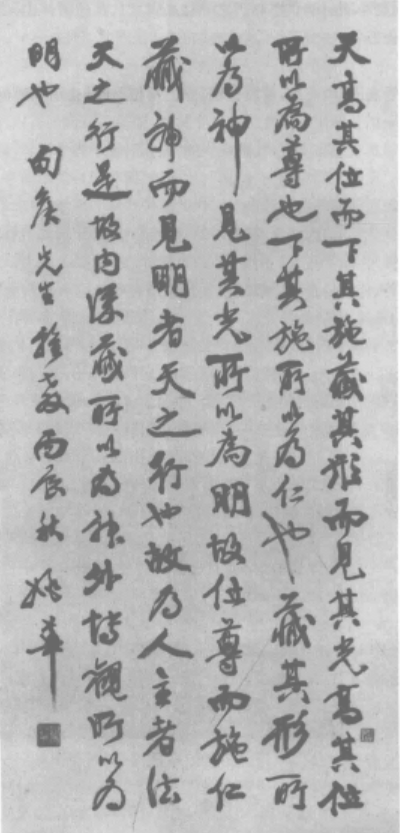 天高其位而下其施藏其形而見其光高其位
所以為尊也下其施所以為仁也藏其形所
以為神見其光所以為明故位尊而施仁
藏神而見明者天之行也故為人主者法
天之行是故內深藏所以為神外博觀所以為
明也 侯先生教丙辰秋 姚華